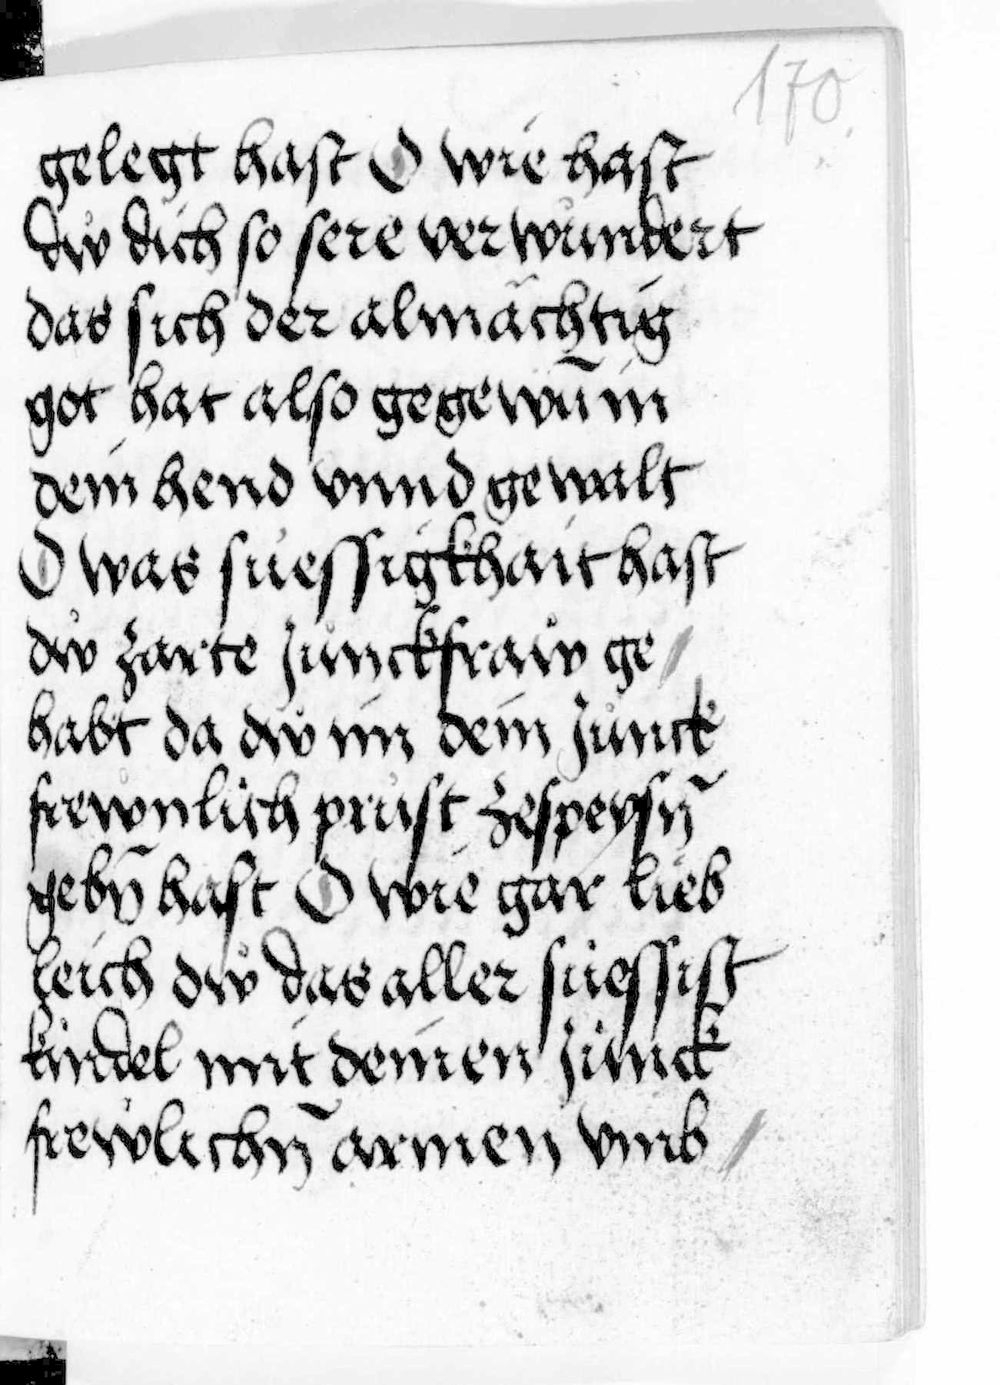 170.
gelegt hast O wie hast
dẘ dich so sere verwůndert
das sich der almächtig
got hat also gegewn̄ in
dein hend vnnd gewalt
O was sůessigkhait hast
dẘ zarte Jůnckfraẘ ge/
habt da dẘ im dein Jůnck
frewnlich průst zespeysn̄
gebn̄ hast O wie gar lieb
leich dẘ das aller sůessist
kindel mit deinen Jůnck
frewlichn̄ armen vmb/